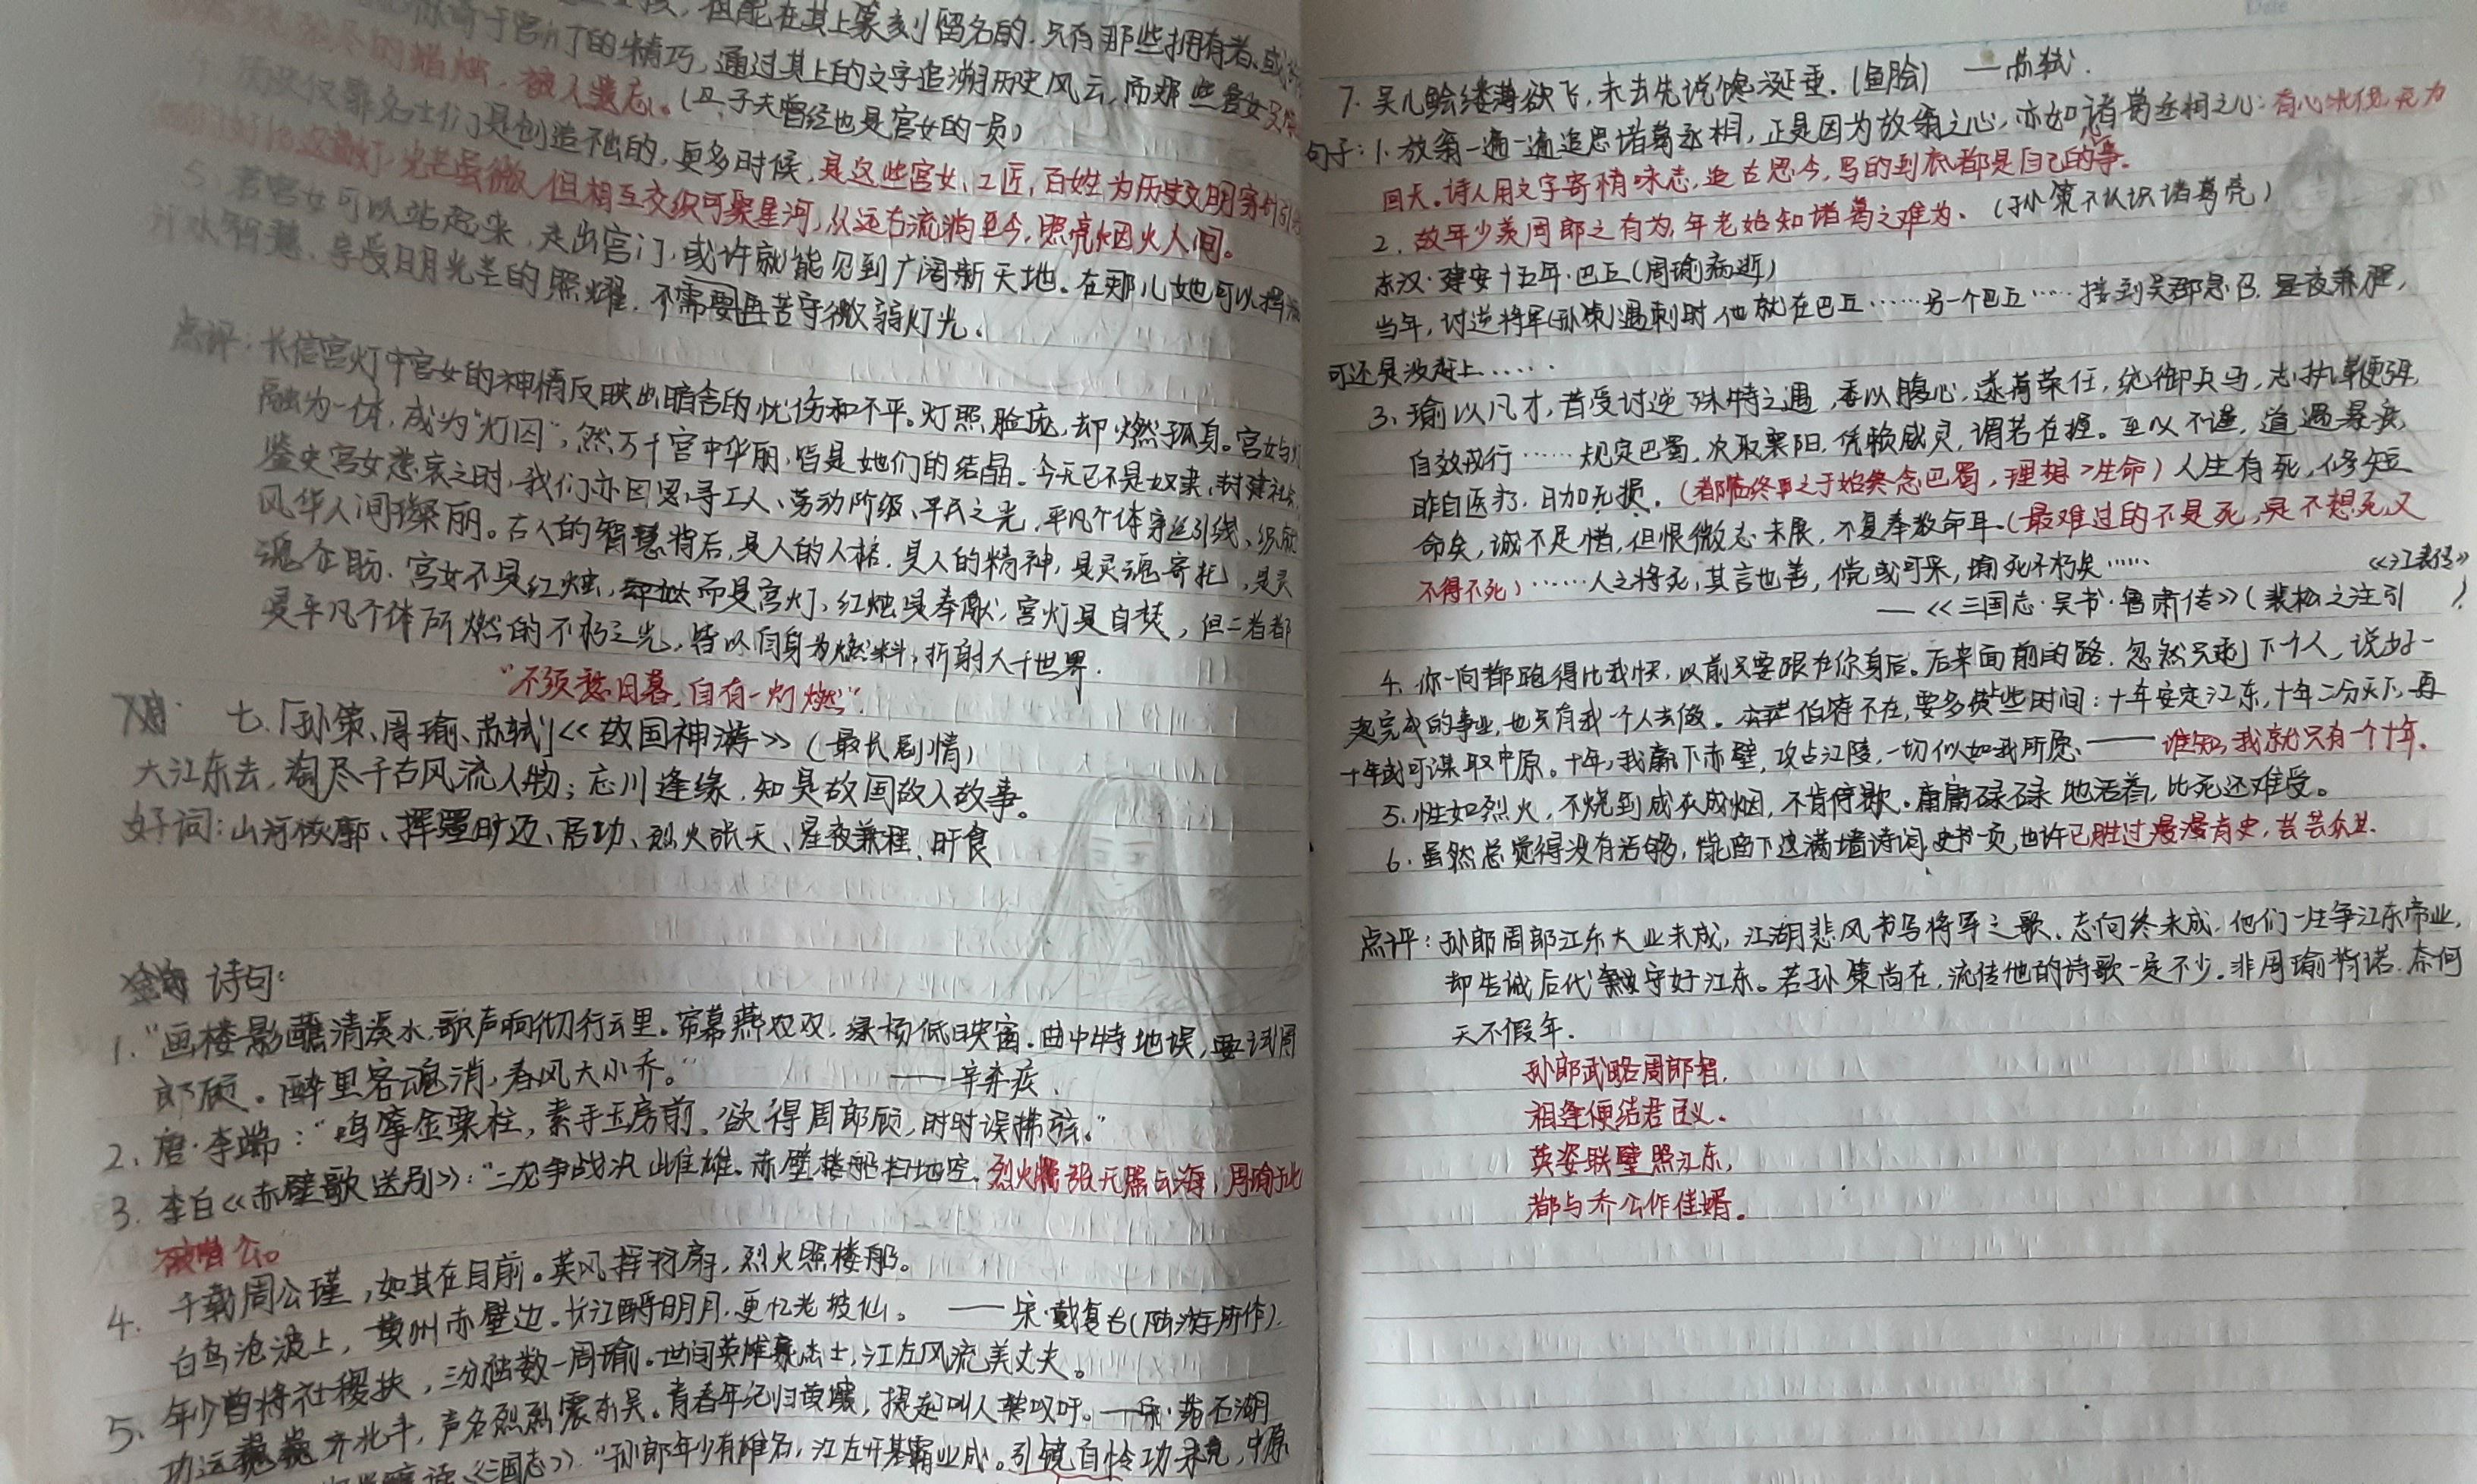 但能在其上篆刻留名的.只有那些拥有者.或
的精巧,通过其上的文字追溯历史风云,而那些宫女
的蜡烛,被人遗忘。(卫子夫曾经也是宫女的一员)
仅靠名士们是创造不出的,更多时候,是这些宫女、工匠,百姓为历史文明穿针引
光芒虽微,但相互交织可聚星河,从远古流淌至今,照亮烟火人间。
5.若宫女可以站起来,走出宫门,或许就能见到广阔新天地。在那儿她也可以挥
智慧.享受日月光芒的照耀.不需要再苦守微弱灯光.
点评:长信宫灯中宫女的神情反映出暗含的忧伤和不平。灯照脸庞,却燃孤身。宫女与灯
融为一体,成为“灯囚”,然万千宫中华丽,皆是她们的结晶.今天已不是奴隶,封建社会,
鉴史宫女悲哀之时,我们亦因思寻工人、劳动阶级、平民之光,平凡个体穿起引线、织就
风华人间璨丽。古人的智慧背后,是人的人格,是人的精神,是灵魂寄托,是灵
魂企盼.宫女不是红烛,而是宫灯,红烛是奉献,宫灯是自焚,但二者都
是平凡个体所燃的不朽之光,皆以自身为燃料,折射大千世界.
“不须愁日暮,自有一灯燃”.
七.「孙策、周瑜、苏轼」《故国神游》(最长剧情)
大江东去,淘尽千古风流人物;忘川逢缘,知是故国故人故事。
好词:山河恢廓、挥斥旷迈、居功、烈火张天、星夜兼程、旰食
诗句:
1.“画楼影蘸清溪水,歌声响彻行云里。帘幕燕双双,绿杨低映窗.曲中特地误,要试周
郎顾。醉里客魂消,春风大小乔。” ——辛弃疾.
2、唐·李端:“鸣筝金粟柱,素手玉房前,欲得周郎顾,时时误拂弦。”
3.李白《赤壁歌送别》:“二龙争战决雌雄.赤壁楼船扫地空.烈火张天照云海,周瑜于此
破曹公。
4. 千载周公瑾,如其在目前。英风挥羽扇,烈火照楼船。
白鸟沧波上,黄州赤壁边.长江酹明月,更忆老坡仙。 ——宋·戴复古(陆游所作).
5. 年少曾将社稷扶,三分独数一周瑜.世间英雄豪杰士,江左风流美丈夫。
功运巍巍齐北斗,声名烈烈震东吴。青春年纪归黄壤,提起叫人转叹吁。——宋·范石湖
《三国志》:“孙郎年少有雄名,江左开基霸业成。引镜自怜功未竟,中原
7.吴儿鲙缕薄欲飞,未去先说馋涎垂.(鱼脍) ——苏轼.
句子:1.放翁一遍一遍追思诸葛丞相,正是因为放翁之心,亦如诸葛丞相之心:有心杀伐,无力
回天.诗人用文字寄情咏志,追古思今,写的到底都是自己的事。
2.故年少羡周郎之有为,年老始知诸葛之难为.(孙策不认识诸葛亮)
东汉·建安十五年·巴丘(周瑜病逝)
当年,讨逆将军(孙策)遇刺时,他就在巴丘……另一个巴丘……接到吴郡急召.星夜兼程,
可还是没赶上……
3.瑜以凡才,昔受讨逆殊特之遇,委以腹心,遂荷荣任,统御兵马,志执鞭弭,
自效戎行……规定巴蜀,次取襄阳,凭赖威灵,谓若在握。至以不谨,道遇暴疾,
昨自医疗,日加无损.(都临终再之于始终念巴蜀,理想>生命)人生有死,修短
命矣,诚不足惜,但恨微志未展,不复奉教命耳.(最难过的不是死,是不想死,又
不得不死)……人之将死,其言也善,傥或可采,瑜死不朽矣…… 《江表传》
——《三国志·吴书·鲁肃传》(裴松之注引 )
4.你一向都跑得比我快,以前只要跟在你身后。后来面前的路.忽然只剩下一个人,说好一
起完成的事业,也只有我一个人去做.伯符不在,要多费些时间:十年安定江东,十年二分天下,再
十年或可谋取中原。十年,我赢下赤壁,攻占江陵,一切似如我所愿、——谁知,我就只有一个十年.
5.性如烈火,不烧到成灰成烟,不肯停歇.庸庸碌碌地活着,比死还难受。
6.虽然总觉得没有活够,能留下这满墙诗词,史书一页,也许已胜过漫漫青史,芸芸众生.
点评:孙郎周郎江东大业未成,江湖悲风书写将军之歌.志向终未成.他们一生争江东帝业,
却告诫后代守好江东。若孙策尚在,流传他的诗歌一定不少.非周瑜背诺.奈何
天不假年.
孙郎武略周郎智,
相逢便结君臣义.
英姿联璧照江东,
都与乔公作佳婿。